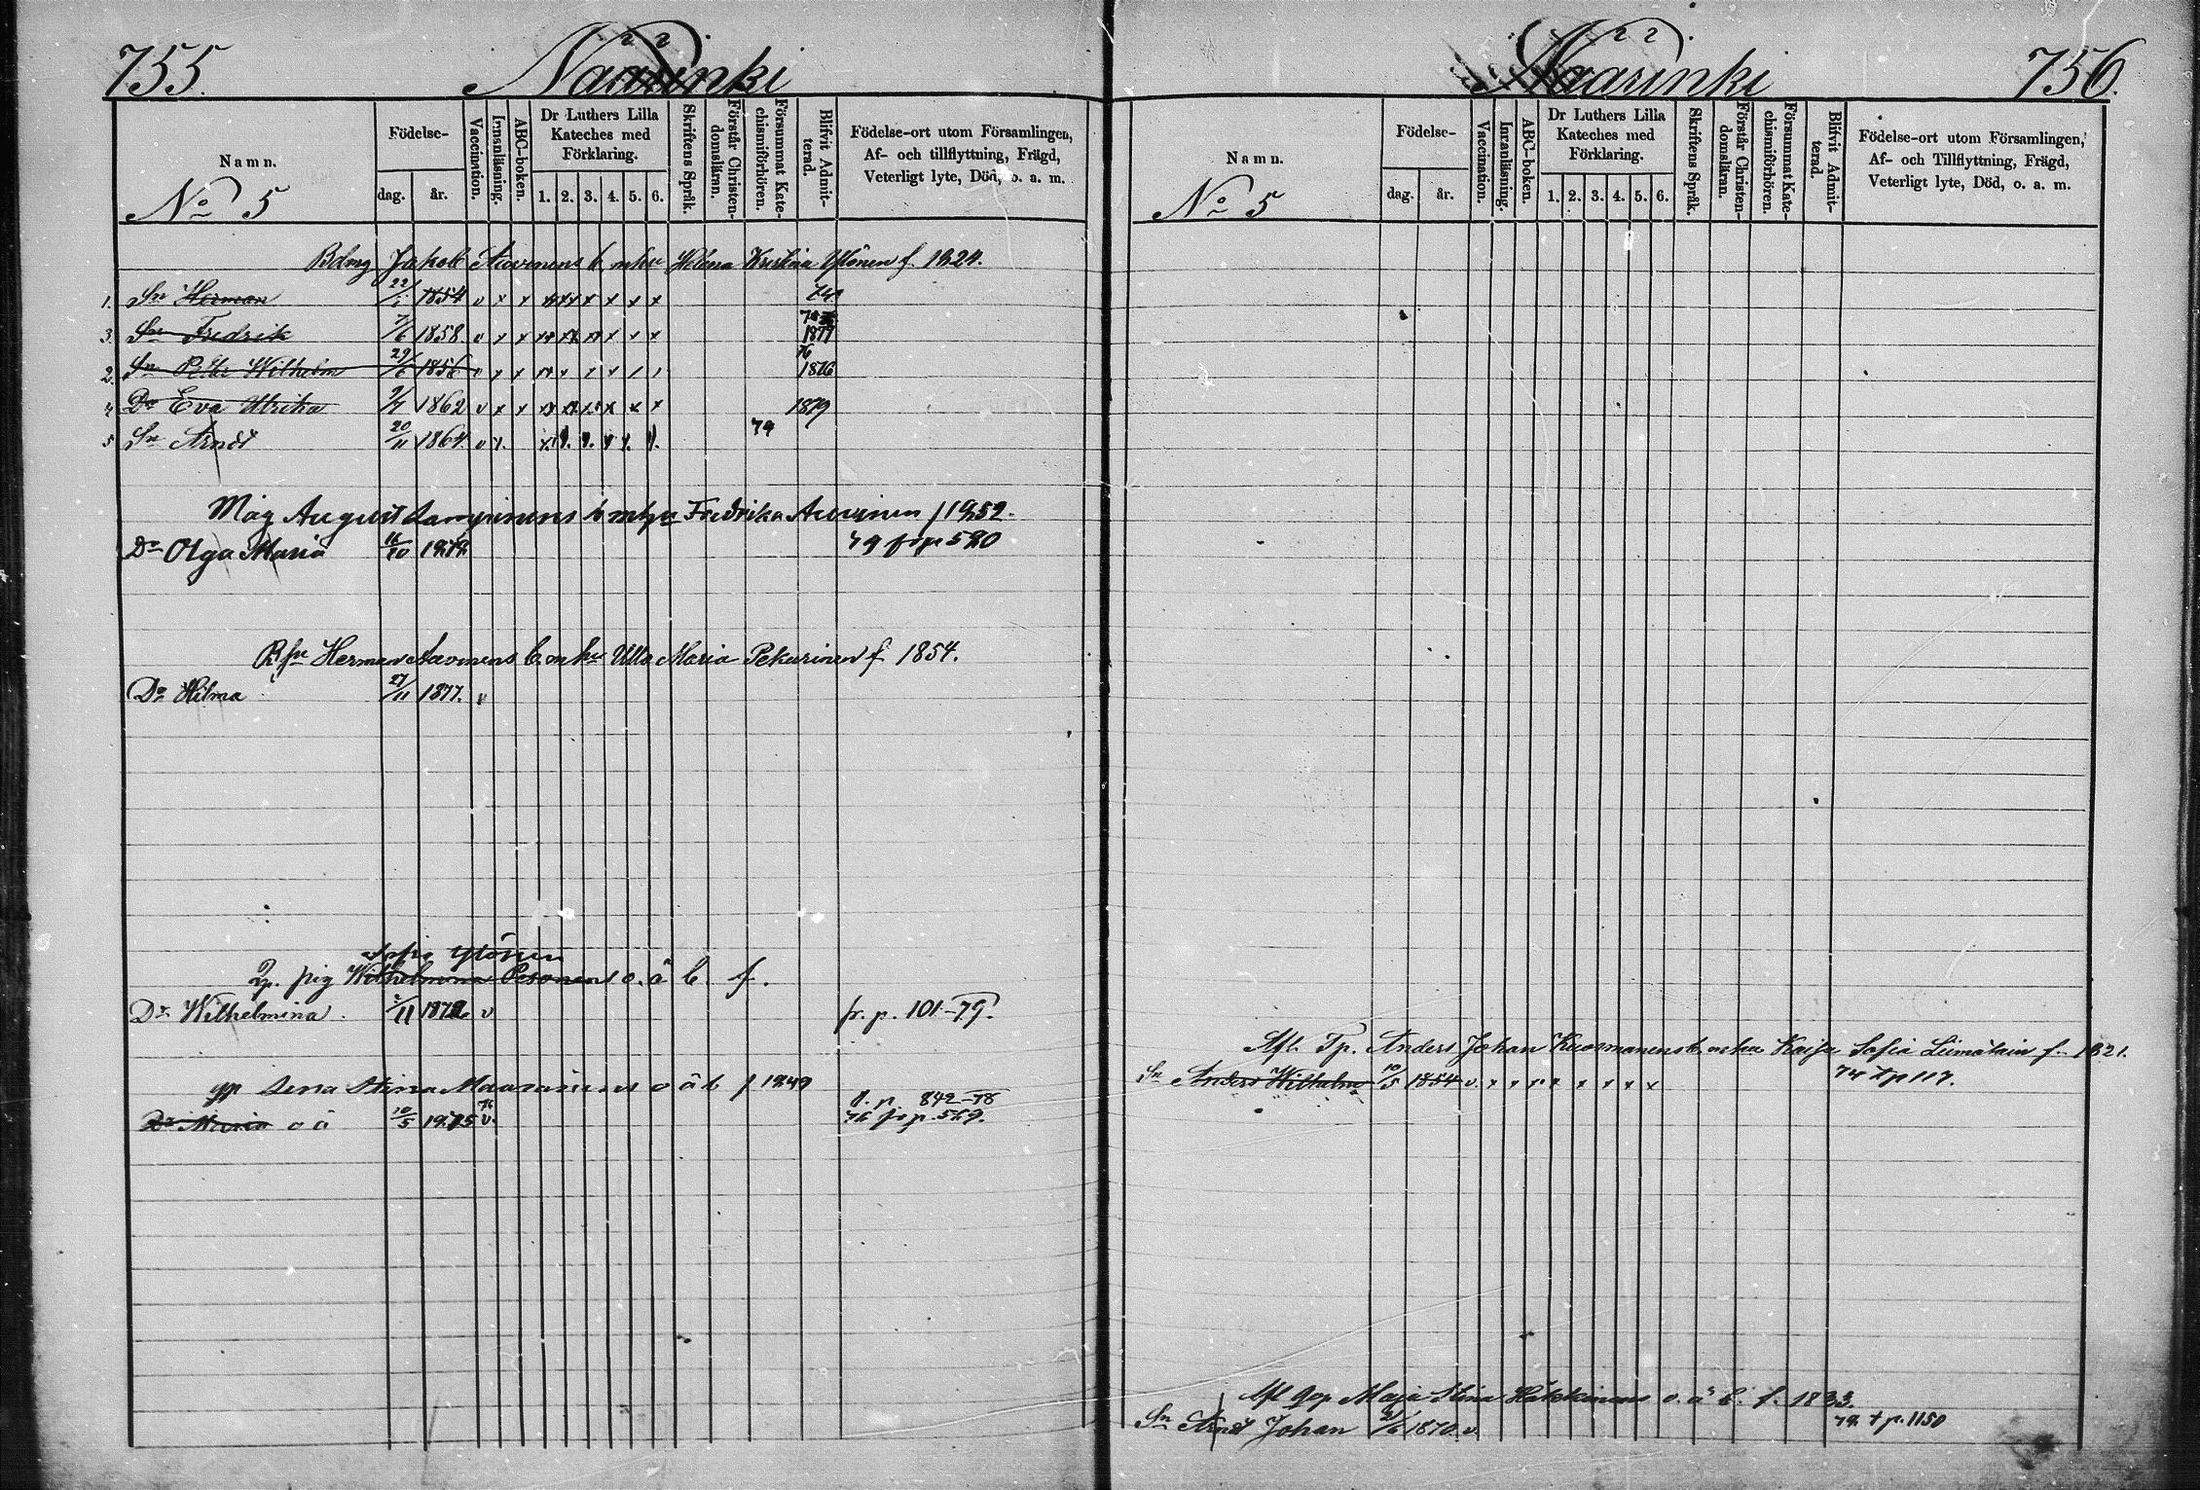 755. Näärinki
Namn.
Födelse-
dag. år.
Vaccination.
Innanläsning.
ABC-boken.
Dr Luthers Lilla Kateches med Förklaring.
1. 2. 3. 4. 5. 6.
Skriftens Språk.
Förstår Christendomsläran.
Försummat Katechismiförhören.
Blifvit Admitterad.
Födelse-ort utom Församlingen,
Af- och tillflyttning, Frägd,
Veterligt lyte, Död, o. a. m.
No 5
Bdmg Jakob Auvinens b. mhu Helena Kristina Ylönen f. 1824.
1. Sn Herman 22/ 1854 v x x x x x x x x 74
3. Sn Fredrik 7/6 1858 v x x x x x x x x 1877
2. Sn Petter Wilhelm 29/6 1856 v x x 76 1876
4 Dr Eva Ulrika 1862 v x x x x x x x x 1879
5 Sn Arndt 20/11 1864 v x. 79
Måg August b mhu Fredrika Auvinen f 1852.
Dr Olga Maria 16/10 1878 79 fr p 580
Herman Auvinens b. mhu Ulla Maria Pekurinen f 1854.
Dr Hilma 27/11 1877. v
Sofia Ylönen
pig Wilhelmina Pesonens o. ä b. f.
Dr Wilhelmina. /11 1872 v fr. p. 101-79.
Lena Stina o ä b f 1849
f. p. 842-78
Dr Maria o ä 10/5 1875 v. 76 fr p. 589.
Näärinki 756.
Namn.
Födelse-
dag. år.
Vaccination.
Innanläsning.
ABC-boken.
Dr Luthers Lilla Kateches med Förklaring.
1. 2. 3. 4. 5. 6.
Skriftens Språk.
Förstår Christendomsläran.
Försummat Katechismiförhören.
Blifvit Admitterad.
Födelse-ort utom Församlingen,
Af- och Tillflyttning, Frägd,
Veterligt lyte, Död, o. a. m.
No 5
Afl. Tp. Anders Johan Kuosmanens b. mhu Kaisa Sofia Liimatain f. 1821.
Sn Anders Wilhelm 10/5 1854 v. x x x x x x x x x 74 t p 117.
Afl. Maja Stina Häkkinens o. ä b. f. 1833.
Sn Arndt Johan 21/6 1870. v. 79 t p. 1150